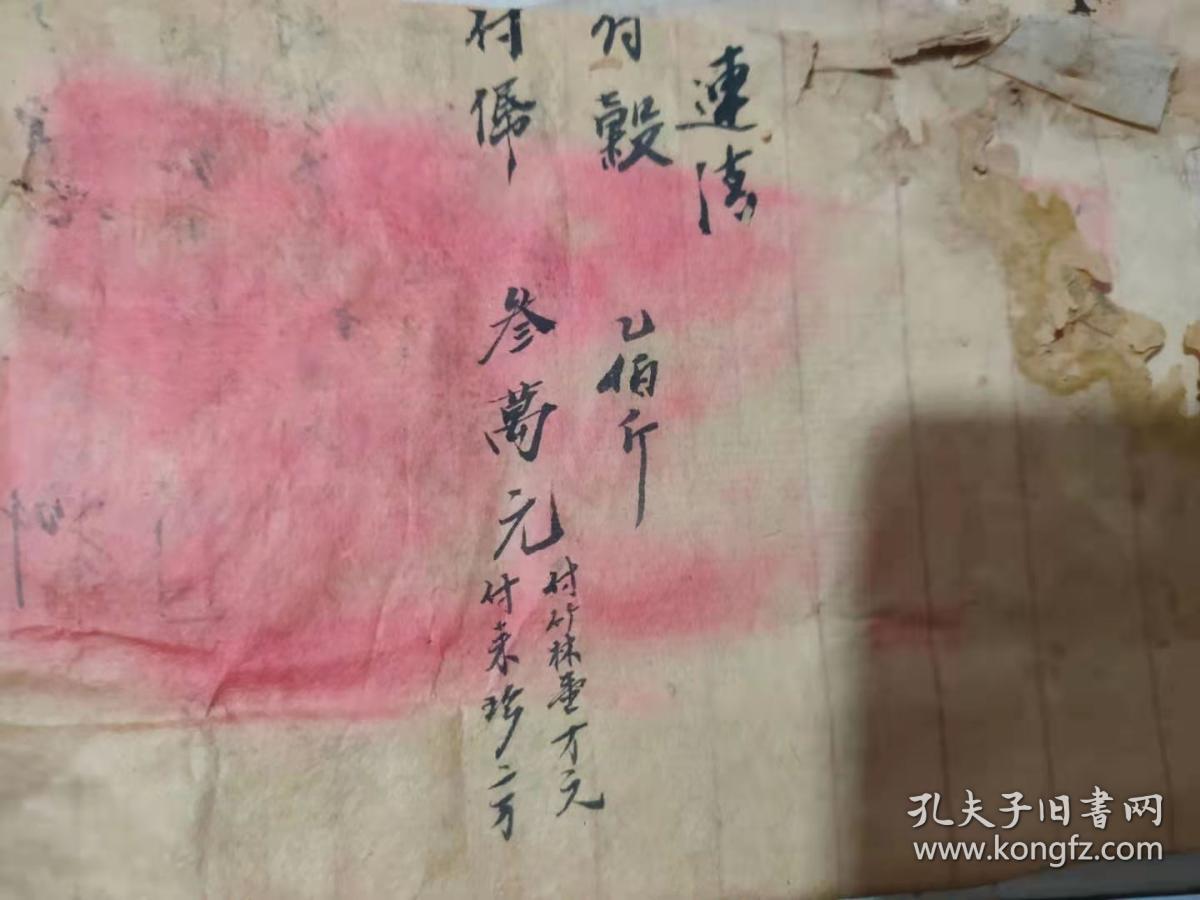 連清
付穀 乙佰斤
付俙 叁萬元
付竹林壹万元
付来珍二万
孔夫子旧书网
www.kongfz.com